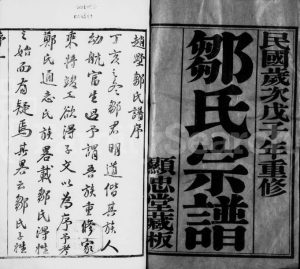 民國歲次戊子年重修
鄒氏宗譜
顯忠堂藏板
趙墅鄒氏譜序
丁亥之冬鄒君明道偕其族人
幼航宦生過予謂吾族重修家
乘將竣工欲得子文以為序予考
鄒氏通志氏族畧載鄒氏得姓
之始而有疑焉其畧云鄒氏子姓